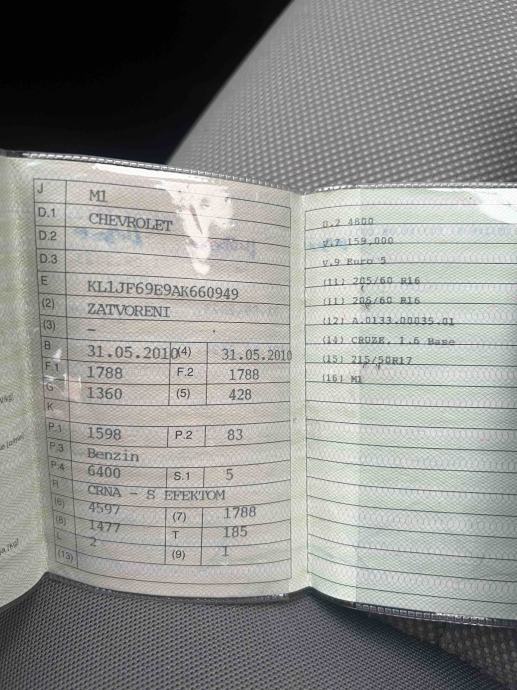 J M1
D.1 CHEVROLET
D.2
D.3
E KL1JF69E9AK660949
(2) ZATVORENI
(3) –
B 31.05.2010 (4) 31.05.2010
F.1 1788 F.2 1788
G 1360 (5) 428
K
P.1 1598 P.2 83
P.3 Benzin
P.4 6400 S.1 5
R CRNA - S EFEKTOM
(6) 4597 (7) 1788
(8) 1477 T 185
L 2 (9) 1
(13)
D.2 4800
V.7 159,000
V.9 Euro 5
(11) 205/60 R16
(11) 205/60 R16
(12) A.0133.00035.01
(14) CRUZE, 1.6 Base
(15) 215/50R17
(16) M1